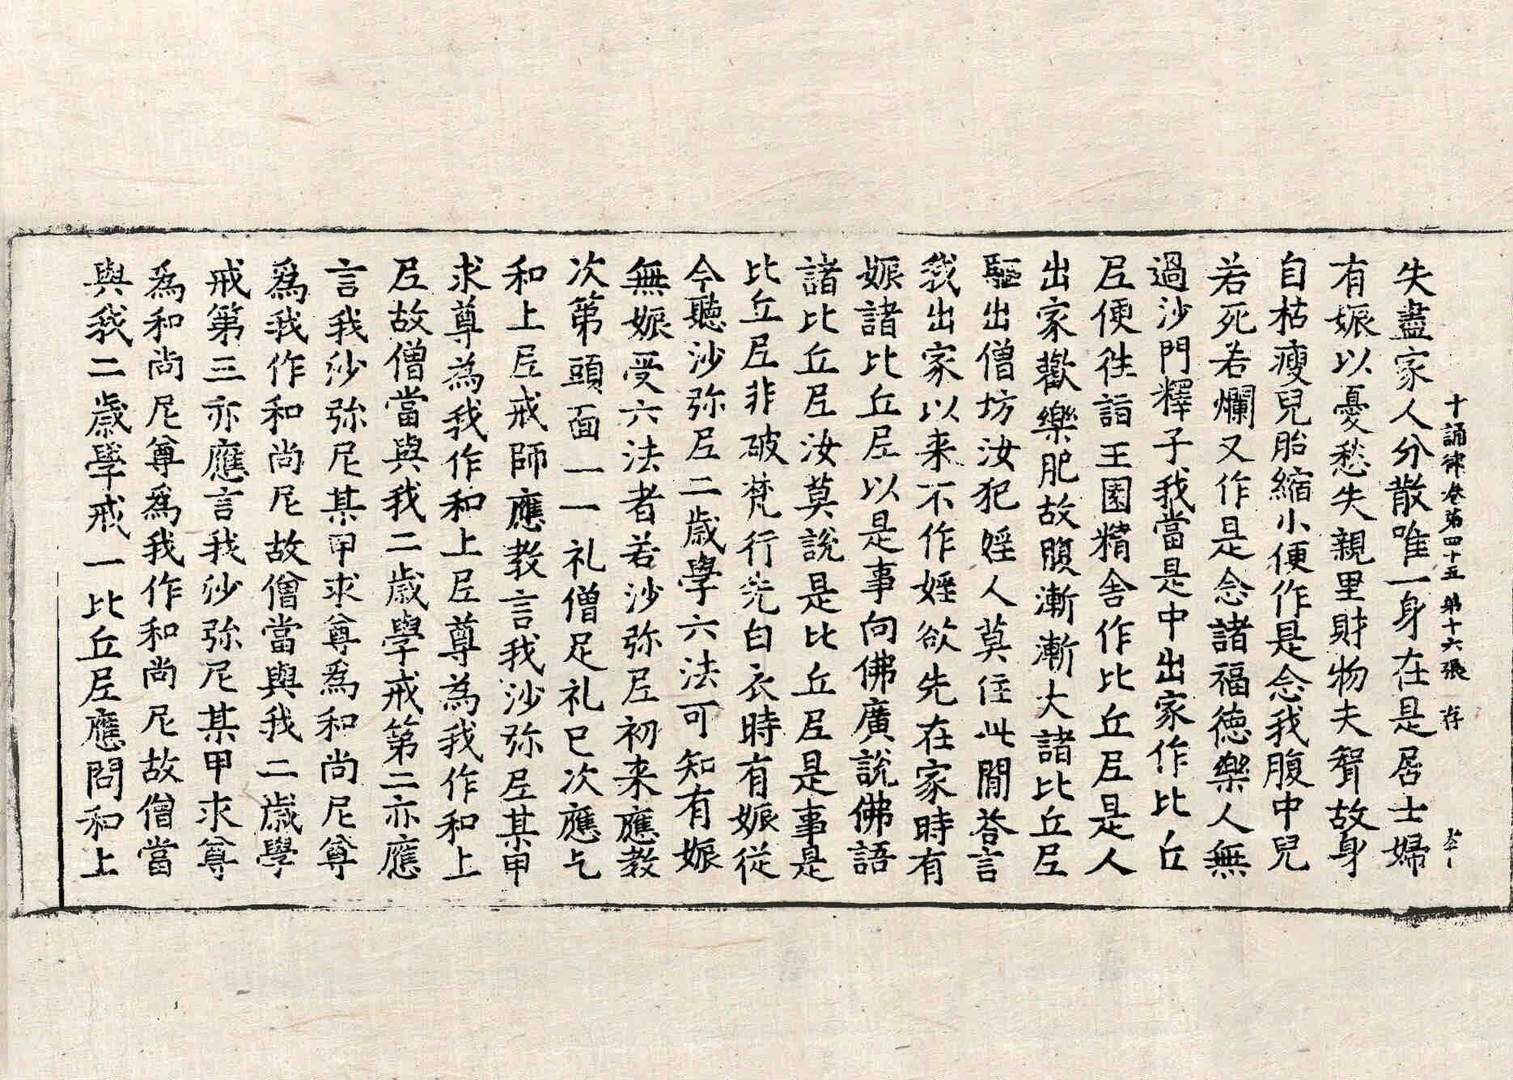 十誦律卷第四十五 第十六張 存
失盡家人分散唯一身在是居士婦
有娠以憂愁失親里財物夫聟故身
自枯瘦兒胎縮小便作是念我腹中兒
若死若爛又作是念諸福德樂人無
過沙門釋子我當是中出家作比丘
尼便往詣王園精舍作比丘尼是人
出家歡樂肥故腹漸漸大諸比丘尼
驅出僧坊汝犯婬人莫住此間答言
我出家以来不作婬欲先在家時有
娠諸比丘尼以是事向佛廣說佛語
諸比丘尼汝莫說是比丘尼是事是
比丘尼非破梵行先白衣時有娠從
今聽沙弥尼二歲學六法可知有娠
無娠受六法者若沙弥尼初来應教
次第頭面一一礼僧足礼已次應乞
和上尼戒師應教言我沙弥尼某甲
求尊為我作和上尼尊為我作和上
尼故僧當與我二歲學戒第二亦應
言我沙弥尼某甲求尊為和尚尼尊
為我作和尚尼故僧當與我二歲學
戒第三亦應言我沙弥尼某甲求尊
為和尚尼尊為我作和尚尼故僧當
與我二歲學戒一比丘尼應問和上